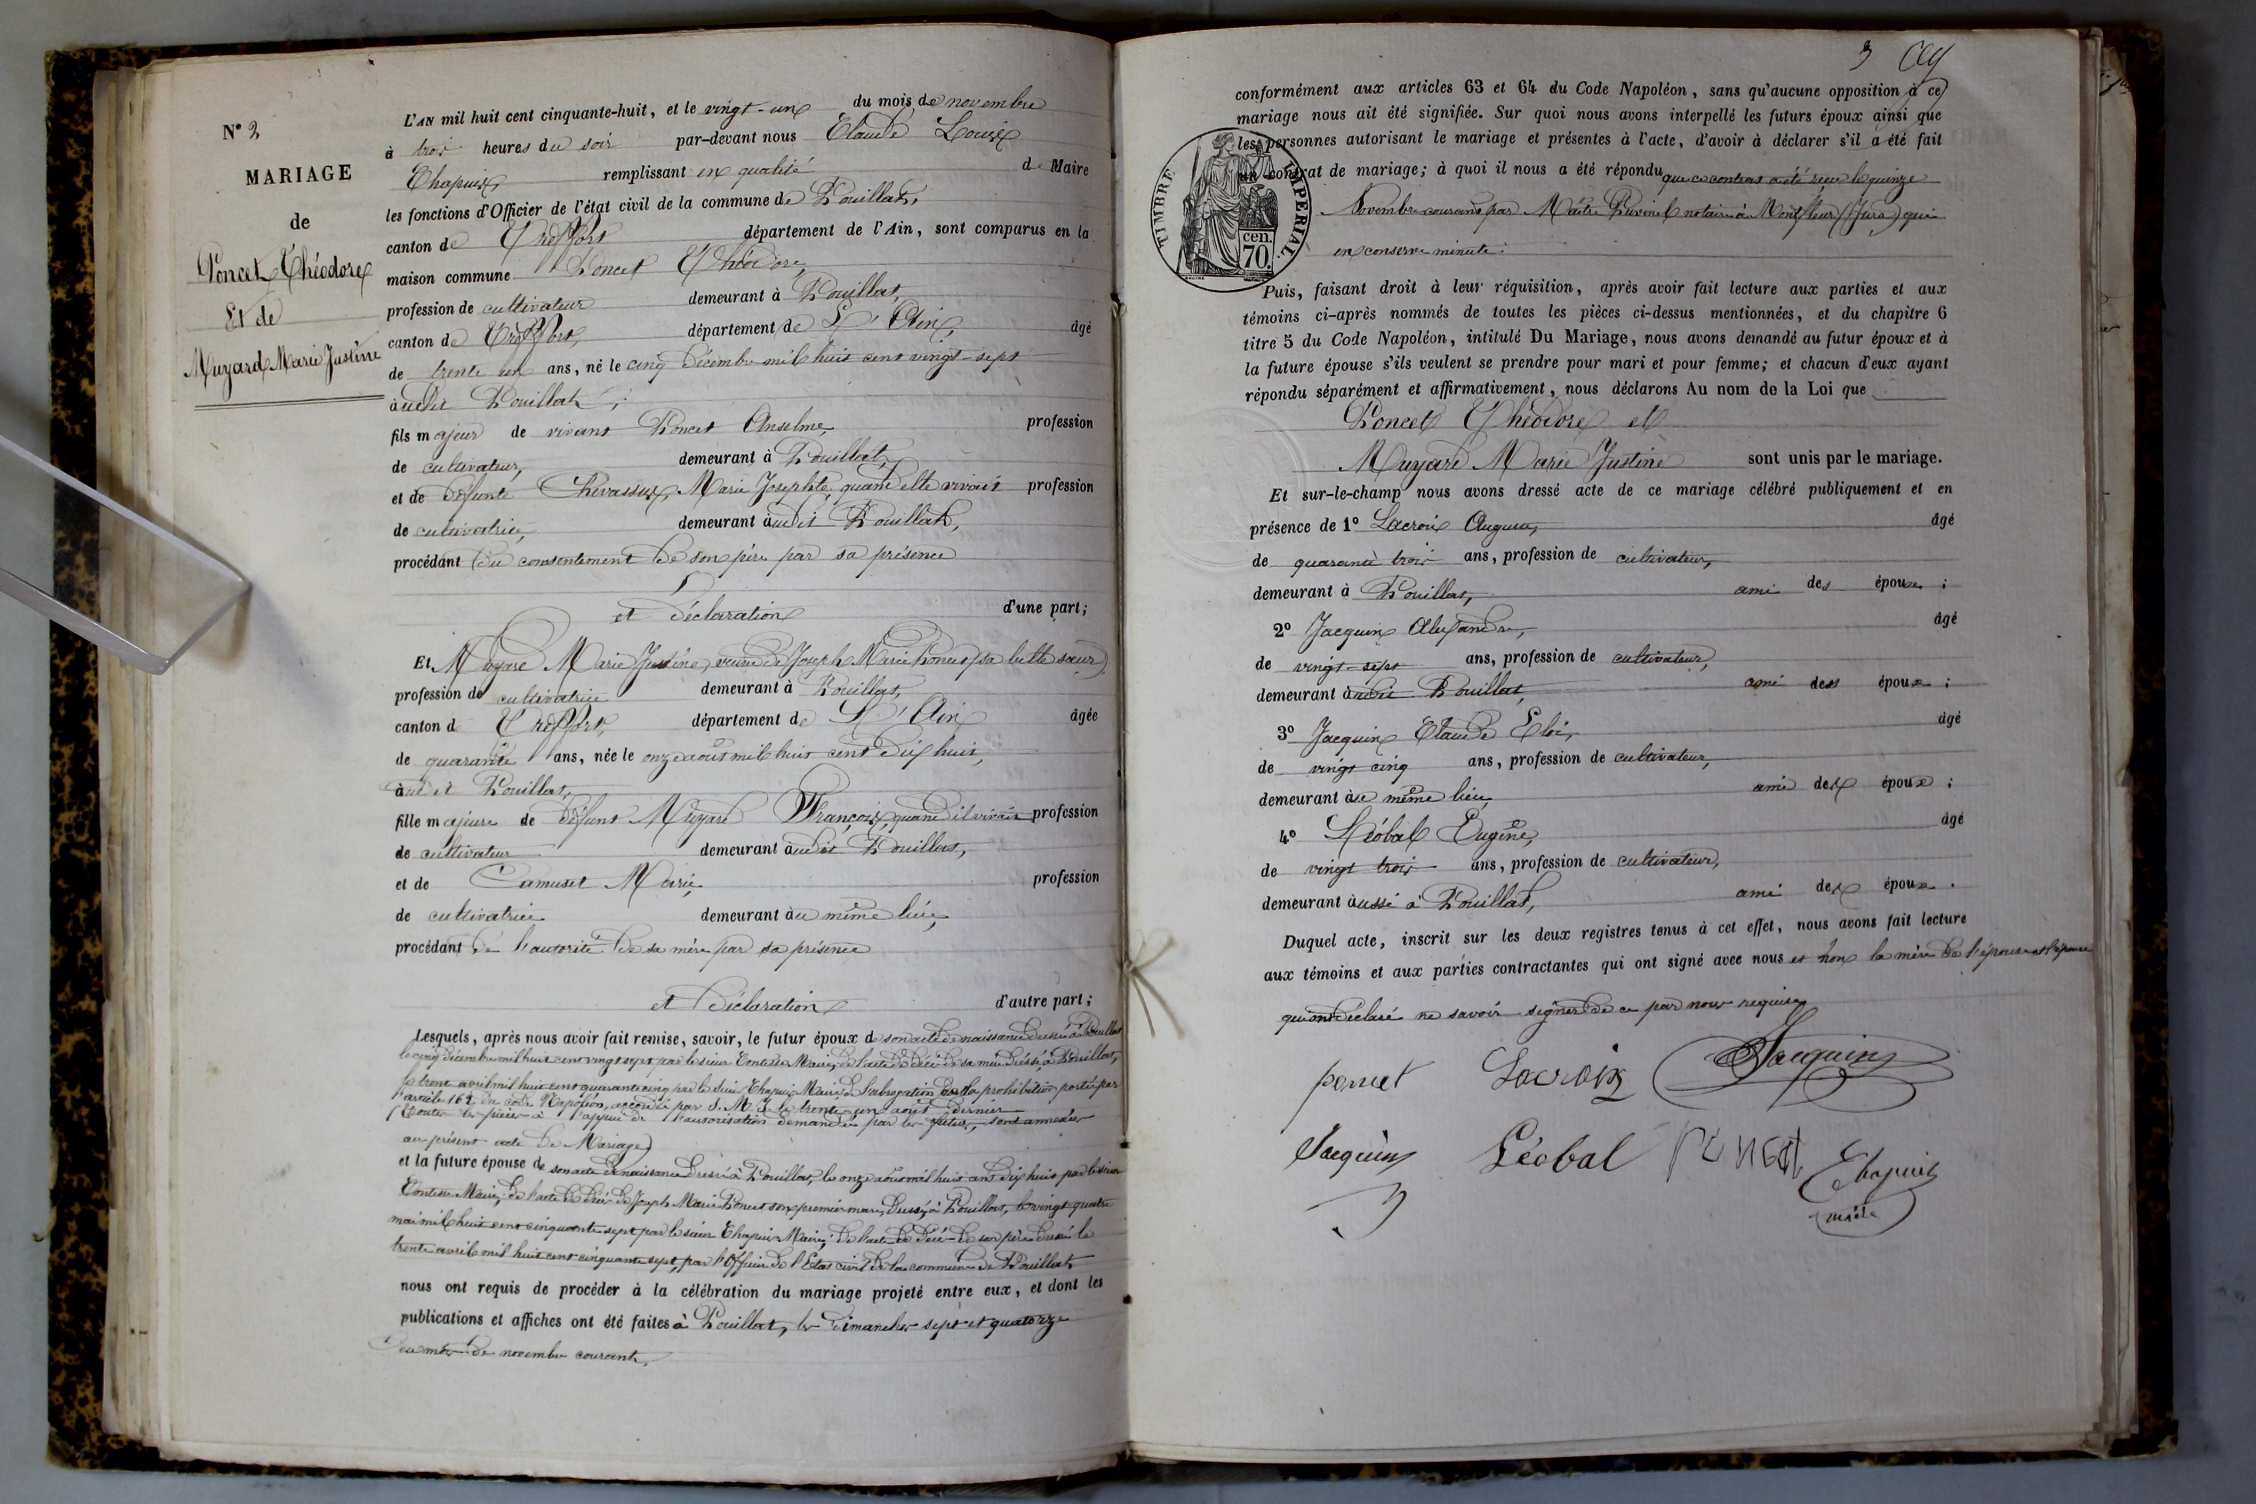 N° 2
MARIAGE
de
Poncet Théodore
Et de
Muyard Marie Justine
L'AN mil huit cent cinquante-huit, et le vingt-un du mois de novembre
à trois heures du soir par-devant nous Claude Louis
Chapuis, remplissant en qualité de Maire
les fonctions d'Officier de l'état civil de la commune de Pouillat,
canton de Treffort département de l'Ain, sont comparus en la
maison commune Poncet Théodore,
profession de cultivateur demeurant à Pouillat,
canton de Treffort, département de L'Ain, âgé
de trente un ans, né le cinq Décembre mil huit cent vingt-sept
à udit Pouillat,
fils majeur de vivant Poncet Anselme, profession
de cultivateur, demeurant à Pouillat,
et de défunte Chevassux, Marie Josephte, quand elle vivait profession
de cultivatrice, demeurant audit Pouillat,
procédant du consentement de son père par sa présence
et Déclaration d'une part;
Et Muyard Marie Justine, veuve de Joseph Marie Poncet (sa belle sœur)
profession de cultivatrice demeurant à Pouillat,
canton de Treffort, département de L'Ain âgée
de quarante ans, née le onze août mil huit cent dix huit,
à udit Pouillat,
fille majeure de défunt Muyard François, quand il vivait profession
de cultivateur demeurant audit Pouillat,
et de Camuset Marie, profession
de cultivatrice demeurant au même lieu,
procédant de l'autorité de sa mère par sa présence
et Déclaration d'autre part;
Lesquels, après nous avoir fait remise, savoir, le futur époux de son acte de naissance dressé à Pouillat
le cinq Décembre mil huit cent vingt sept, par le sieur Maire, de l'acte de décès de sa mère dressé à Pouillat,
le trente avril mil huit cent quarante cinq par le sieur Chapuis Maire, de l'abrogation de la prohibition portée par
l'article 162 du code Napoléon, accordée par S. M. I. le trente-un août dernier
Et toutes les pièces à l'appui de l'autorisation demandée par les futurs, sont annexées
au présent acte de Mariage
et la future épouse de son acte de naissance dressé à Pouillat, le onze août mil huit cent dix huit par le sieur
Maire, de l'acte de décès de Joseph Marie Poncet son premier mari, dressé à Pouillat, le vingt quatre
mai mil huit cent cinquante sept par le sieur Chapuis Maire, de l'acte de décès de son père dressé le
trente avril mil huit cent cinquante sept, par l'Officier de l'Etat civil de la commune de Pouillat
nous ont requis de procéder à la célébration du mariage projeté entre eux, et dont les
publications et affiches ont été faites à Pouillat, les dimanches sept et quatorze
du mois de novembre courant,
3
conformément aux articles 63 et 64 du Code Napoléon, sans qu'aucune opposition à ce
mariage nous ait été signifiée. Sur quoi nous avons interpellé les futurs époux ainsi que
les personnes autorisant le mariage et présentes à l'acte, d'avoir à déclarer s'il a été fait
un contrat de mariage; à quoi il nous a été répondu que ce contrat a été reçu le quinze
Novembre courant par Maître notaire à Montfleur (Jura) qui
en conserve minute.
TIMBRE IMPERIAL
cen.
70.
Puis, faisant droit à leur réquisition, après avoir fait lecture aux parties et aux
témoins ci-après nommés de toutes les pièces ci-dessus mentionnées, et du chapitre 6
titre 5 du Code Napoléon, intitulé Du Mariage, nous avons demandé au futur époux et à
la future épouse s'ils veulent se prendre pour mari et pour femme; et chacun d'eux ayant
répondu séparément et affirmativement, nous déclarons Au nom de la Loi que
Poncet Théodore et
Muyard Marie Justine sont unis par le mariage.
Et sur-le-champ nous avons dressé acte de ce mariage célébré publiquement et en
présence de 1° Lacroix August, âgé
de quarante trois ans, profession de cultivateur,
demeurant à Pouillat, ami des époux ;
2° Jacquin Alexandre, âgé
de vingt-sept ans, profession de cultivateur,
demeurant audit Pouillat, ami des époux ;
3° Jacquin Claude Eloi, âgé
de vingt cinq ans, profession de cultivateur,
demeurant à ce même lieu, ami des époux ;
4° Léobal Eugène, âgé
de vingt trois ans, profession de cultivateur,
demeurant aussi à Pouillat, ami des époux .
Duquel acte, inscrit sur les deux registres tenus à cet effet, nous avons fait lecture
aux témoins et aux parties contractantes qui ont signé avec nous et non la mère de l'épouse et l'épouse
qui ont déclaré ne savoir signer de ce par nous requises
poncet Lacroix Jacquin
Jacquin Léobal PONCET Chapuis
maire